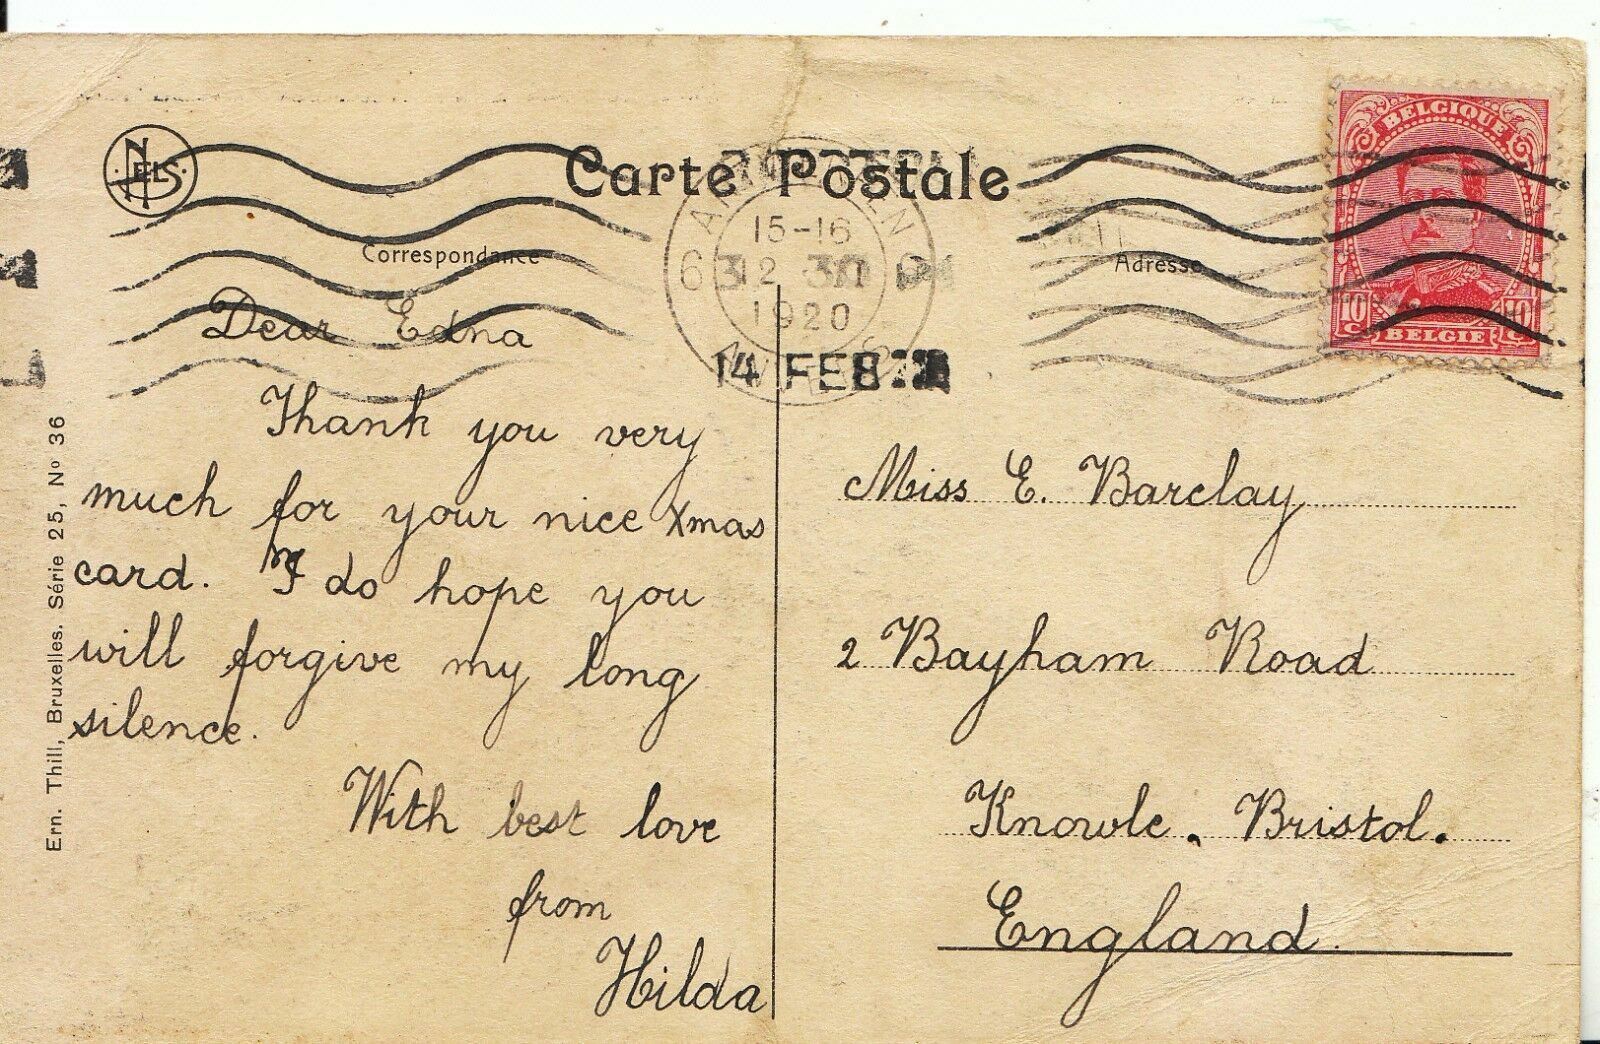 NELS
Carte Postale
Correspondance
Adresse
BELGIQUE
10 C 10 C
BELGIE
15-16
1920
14 FEB
Dear Edna
Thank you very
much for your nice Xmas
card. I do hope you
will forgive my long
silence.
With best love
from
Hilda
Miss E. Barclay
2 Bayham Road
Knowle, Bristol.
England.
Ern. Thill, Bruxelles. Série 25, No 36